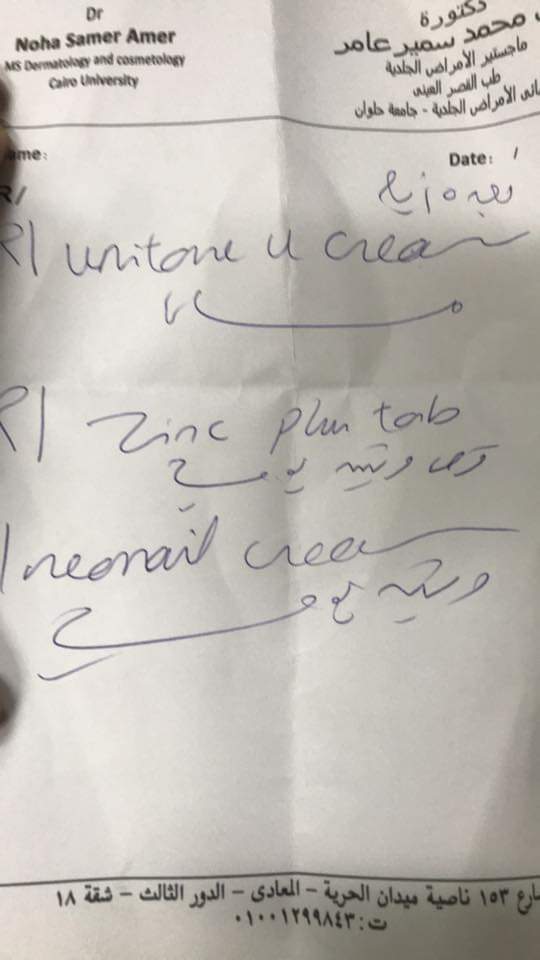 Dr
Noha Samer Amer
MS Dermatology and cosmetology
Cairo University
دكتورة
محمد سمير عامر
ماجستير الأمراض الجلدية
طب القصر العينى
الأمراض الجلدية - جامعة حلوان
ame:
Date: /
R/
R/ unitone u cream
مساء
R/ Zinc plus tab
قرص مرتين يوميا
/ neonail cream
مرتين يوميا
ارع ١٥٣ ناصية ميدان الحرية - المعادى - الدور الثالث - شقة ١٨
ت: ٠١٠٠١٢٩٩٨٤٣